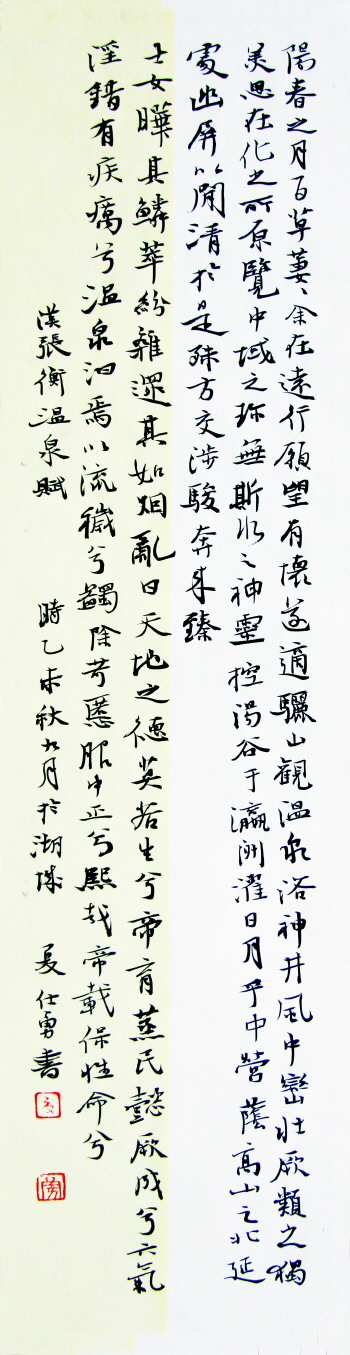 陽春之月百草萋〻余在遠行顧望有懷遂適驪山觀溫泉浴神井風中巒壯厥類之獨
美思在化之所原覽中域之珎無斯水之神靈控湯谷于瀛洲濯日月乎中營蔭高山之北延
處幽屏以閒清於是殊方交涉駿奔來臻
士女曄其鱗萃紛雜遝其如烟亂曰天地之德莫若生兮帝育蒸民懿厥成兮六氣
淫錯有疾癘兮溫泉汩焉以流穢兮蠲除苛慝服中正兮熙哉帝載保性命兮
漢張衡溫泉賦 時乙未秋九月於湖城 夏仕勇書